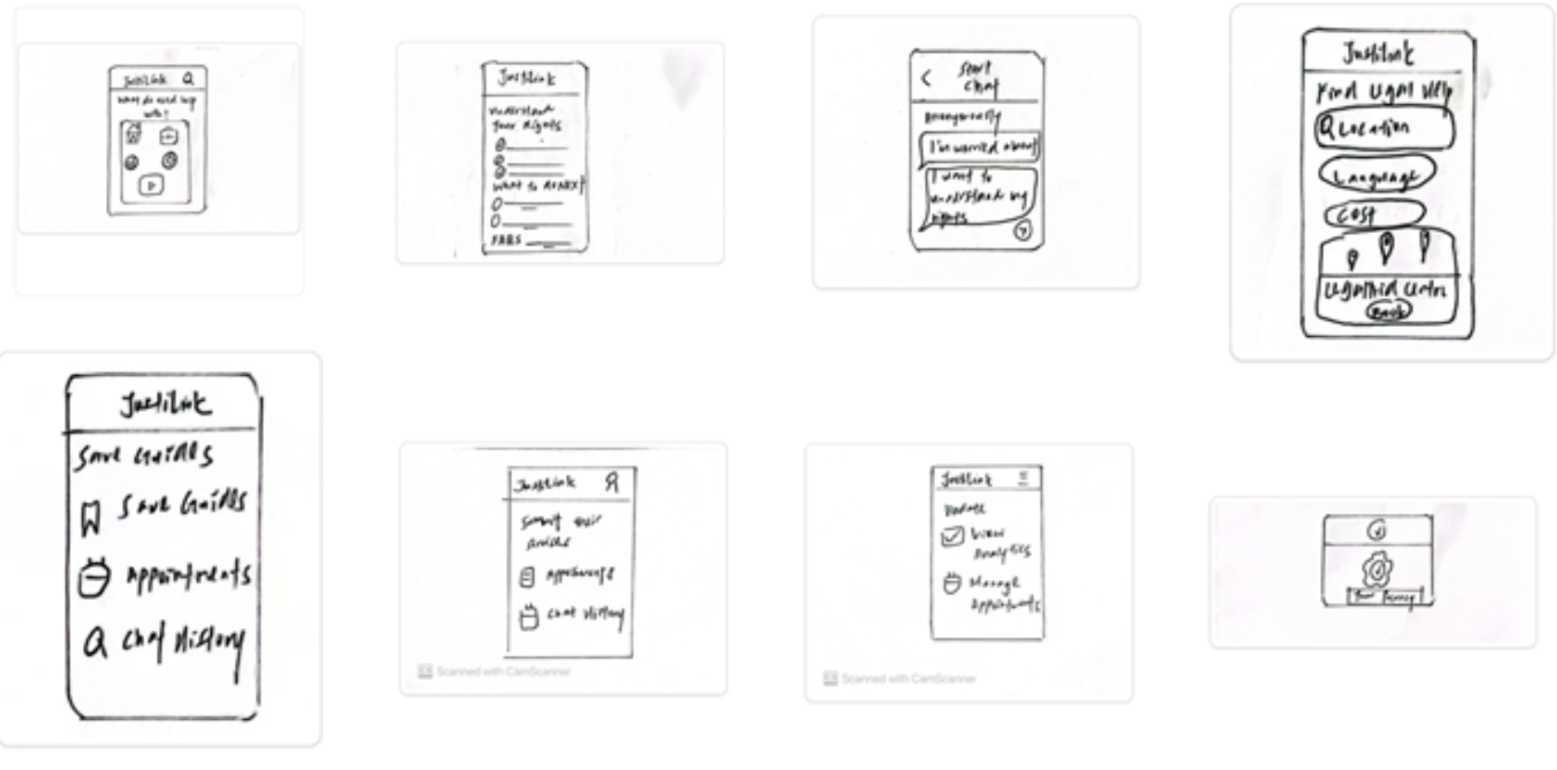 JustiLink
What do need help
with?
JustiLink
Understand
Your Rights
What to do NEXT
FAQS
Start
Chat
Anonymously
I'm worried about
I want to
understand my
rights
JustiLink
Find Legal Help
Location
Language
Cost
Legal Aid Centre
Book
JustiLink
Save Guides
Save Guides
Appointments
Chat History
JustiLink
their
Chat History
Scanned with CamScanner
JustiLink
Update
View
Analytics
Manage
Appointments
Scanned with CamScanner
Your Privacy